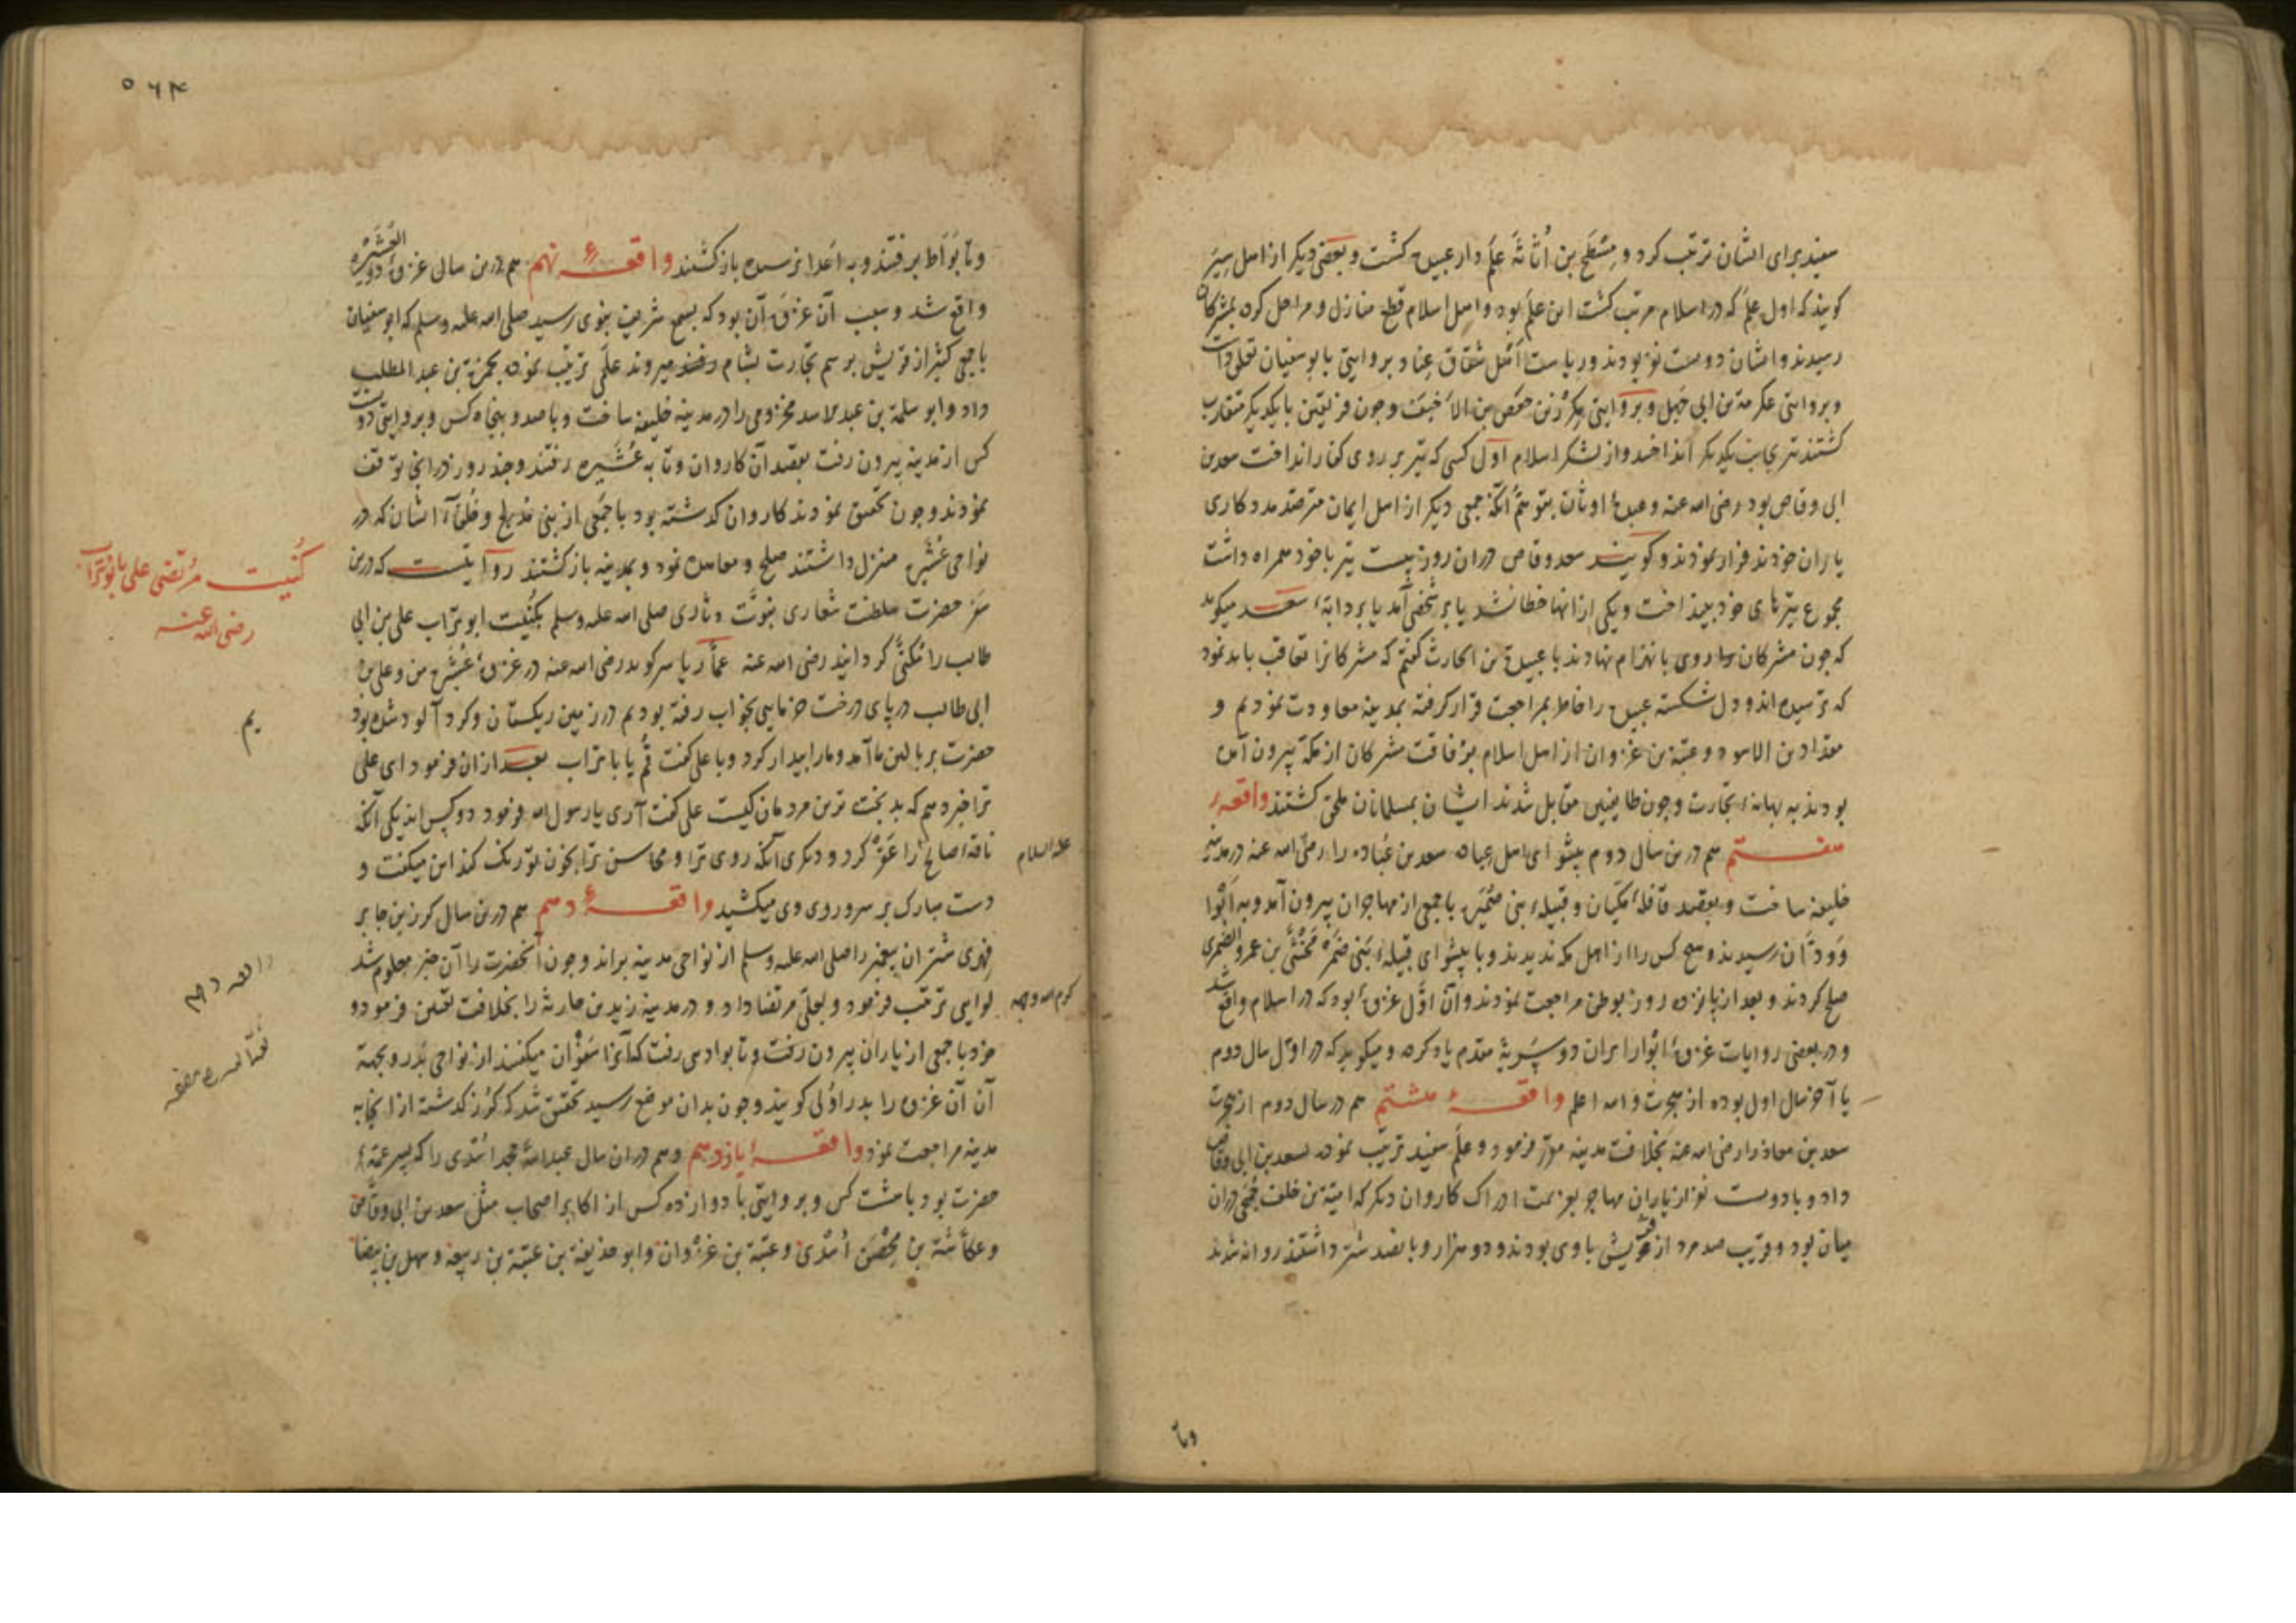 سفید برای ایشان ترتیب کرد و مِسْطَح بن اُثاثَهْ عَلَم دار عبیده کشت و بعضی دیکر از اهل سِیَر
کویند که اول عَلَم که در اسلام مرتب کشت این علم بود و اهل اسلام قطع منازل و مراحل کرده بمشرکان
رسیدند و ایشان دویست نفر بودند و ریاست اهل شقاق عناد بروایتی بابوسفیان تعلق داشت
و بروایتی عکرمة بن ابی جهل و بروایتی مکرز بن حفص بن الاخیف و چون فریقین بایکدیکر متقارب
کشتند تیر بجانب یکدیکر انداختند و از لشکر اسلام اول کسی که تیر بر روی کفار انداخت سعد بن
ابی وقاص بود رضی الله عنه و عبیده و اوثان بتوهّم آنکه جمعی دیکر از اهل ایمان مترصد مددکاری
یاران خودند فرار نمودند و کویند سعد وقاص دران روز بیست تیر با خود همراه داشت
مجموع تیرهای خود بینداخت و یکی از انها خطا نشد یا بر شخصی آمد یا بر دابّهٔ سعد میکوید
که چون مشرکان روی بانهزام نهادند با عبیدة بن الحارث کفتم که مشرکانرا تعاقب باید نمود
که ترسیده اند و دل شکسته عبیده را خاطر بمراجعت قرار کرفته بمدینه معاودت نمودیم و
مقداد بن الاسود و عتبة بن غزوان از اهل اسلام برفاقت مشرکان از مکه بیرون آمده
بودند به بهانهٔ تجارت و چون طایفتین مقابل شدند ایشان بمسلمانان ملحق کشتند واقعهٔ
هفتم هم درین سال دوم پیشوای اهل عباده سعد بن عُباده را رضی الله عنه در مدینه
خلیفه ساخت و بقصد قافلهٔ مکیان و قبیلهٔ بنی ضمیره با جمعی از مهاجران بیرون آمد و به اَبْوا
وَ وَدّان رسیدند و هیچ کس را از اهل مکه ندیدند و با پیشوای قبیلهٔ بنی ضمره مخشی بن عمرو الضمری
صلح کردند و بعد از پانزده روز بوطن مراجعت نمودند و آن اوّل غزوهٔ بود که در اسلام واقع شد
و در بعضی روایات غزوهٔ ابوا را بران دو سَریهٔ مقدم یاد کرده و میکوید که در اوّل سال دوم
یا آخر سال اول بوده از هجرت والله اعلم واقعهٔ هشتم هم در سال دوم از هجرت
سعد بن معاذ را رضی الله عنه بخلافت مدینه مقرر فرمود و علم سفید ترتیب نموده بسعد بن ابی وقاص
داد و با دویست نفر از یاران مهاجر بعزیمت ادراک کاروان دیکر که امیّة بن خلف جُمحی دران
میان بود و قریب صد مرد از قریش با وی بودند و دو هزار و پانصد شتر داشتند روانه شدند
وتا
۵۶۴
وتا بُوَاط برفتند و به اعدا نرسیده باز کشتند واقعهٔ نهم هم درین سال غزوهٔ ذو العُشَیره
واقع شد و سبب آن غزوه آن بود که بسمع شریف نبوی رسید صلی الله علیه وسلم که ابوسفیان
با جمعی کثیر از قریش برسم تجارت بشام میروند علمی ترتیب نموده بحمزة بن عبد المطلب
داد و ابو سلمة بن عبد الاسد مخزومی را در مدینه خلیفه ساخت و با صد و پنجاه کس و بروایتی دویست
کس از مدینه بیرون رفت بقصد آن کاروان وتا به عُشَیره رفتند و چند روز درانجا توقف
نمودند و چون تحقیق نمودند کاروان کذشته بود با جمعی از بنی مدلج و حُلفاء ایشان که در
نواحی عُشَیره منزل داشتند صلح و معاهده نمود و بمدینه باز کشتند روایتست که درین
سفر حضرت سلطنت شعاری نبوّت دثاری صلی الله علیه وسلم بکُنیت ابو تراب علی بن ابی
طالب را مُکَنّی کردانید رضی الله عنه عمّار یاسر کوید رضی الله عنه در غزوهٔ عُشَیره من و علی بن
ابی طالب در پای درخت خرمایی بخواب رفته بودیم در زمین ریکستان و کرد آلود شده بود
حضرت بر بالین ما آمد و ما را بیدار کرد و با علی کفت قُم یا با تراب بعد ازان فرمود ای علی
ترا خبر دهم که بدبخت ترین مردمان کیست علی کفت آری یا رسول الله فرمود دو کس اند یکی آنکه
ناقهٔ صالح را عَقْر کرد و دیکری آنکه روی ترا و محاسن ترا بخون تو رنک کند این میکفت و
دست مبارک بر سر و روی وی میکشید واقعهٔ دهم هم درین سال کرز بن جابر
فهری شتران پیغمبر را صلی الله علیه وسلم از نواحی مدینه براند و چون آنحضرت را آن خبر معلوم شد
لوایی ترتیب فرمود و بعلی مرتضا داد و در مدینه زید بن حارثه را بخلافت تعیین فرمود و
خود با جمعی از یاران بیرون رفت وتا بوادی رفت که آنرا سَفَوان میکفتند از نواحی بدر و بجهة
آن آن غزوه را بدر اُولی کویند و چون بدان موضع رسید تحقیق شد که کُرز کذشته از انجا به
مدینه مراجعت نمود واقعهٔ یازدهم و هم دران سال عبد الله جحد اسدی را که پسر عمّهٔ
حضرت بود با هشت کس و بروایتی با دوازده کس از اکابر اصحاب مثل سعد بن ابی وقاص
و عکّاشة بن مِحْصَن اسدی و عتبة بن غزوان و ابو حذیفة بن عتبة بن ربیعه و سهل بن بیضا
کُنیت مُرتضی علی بابوتراب
رضی الله عنه
یم
علیه السلام
کرم الله وجهه
واقعه دهم